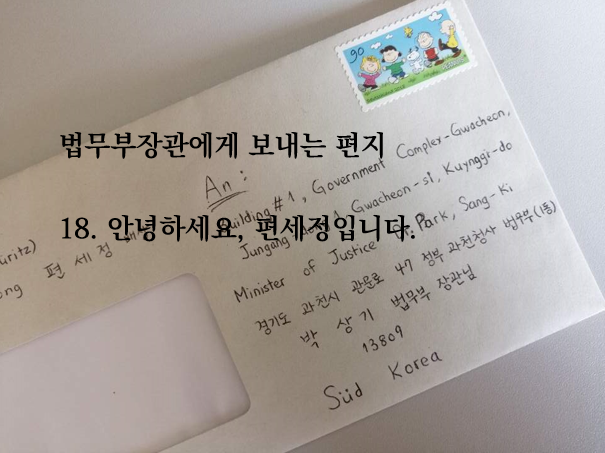 90
법무부장관에게 보내는 편지
18. 안녕하세요, 편세정입니다.
An :
Building #1, Government Complex-Gwacheon,
Gwacheon-si, Kuynggi-do
Minister of Justice Park, Sang-Ki
경기도 과천시 관문로 47 정부 과천청사 법무부(1동)
박 상기 법무부 장관님
13809
Süd Korea
편 세정